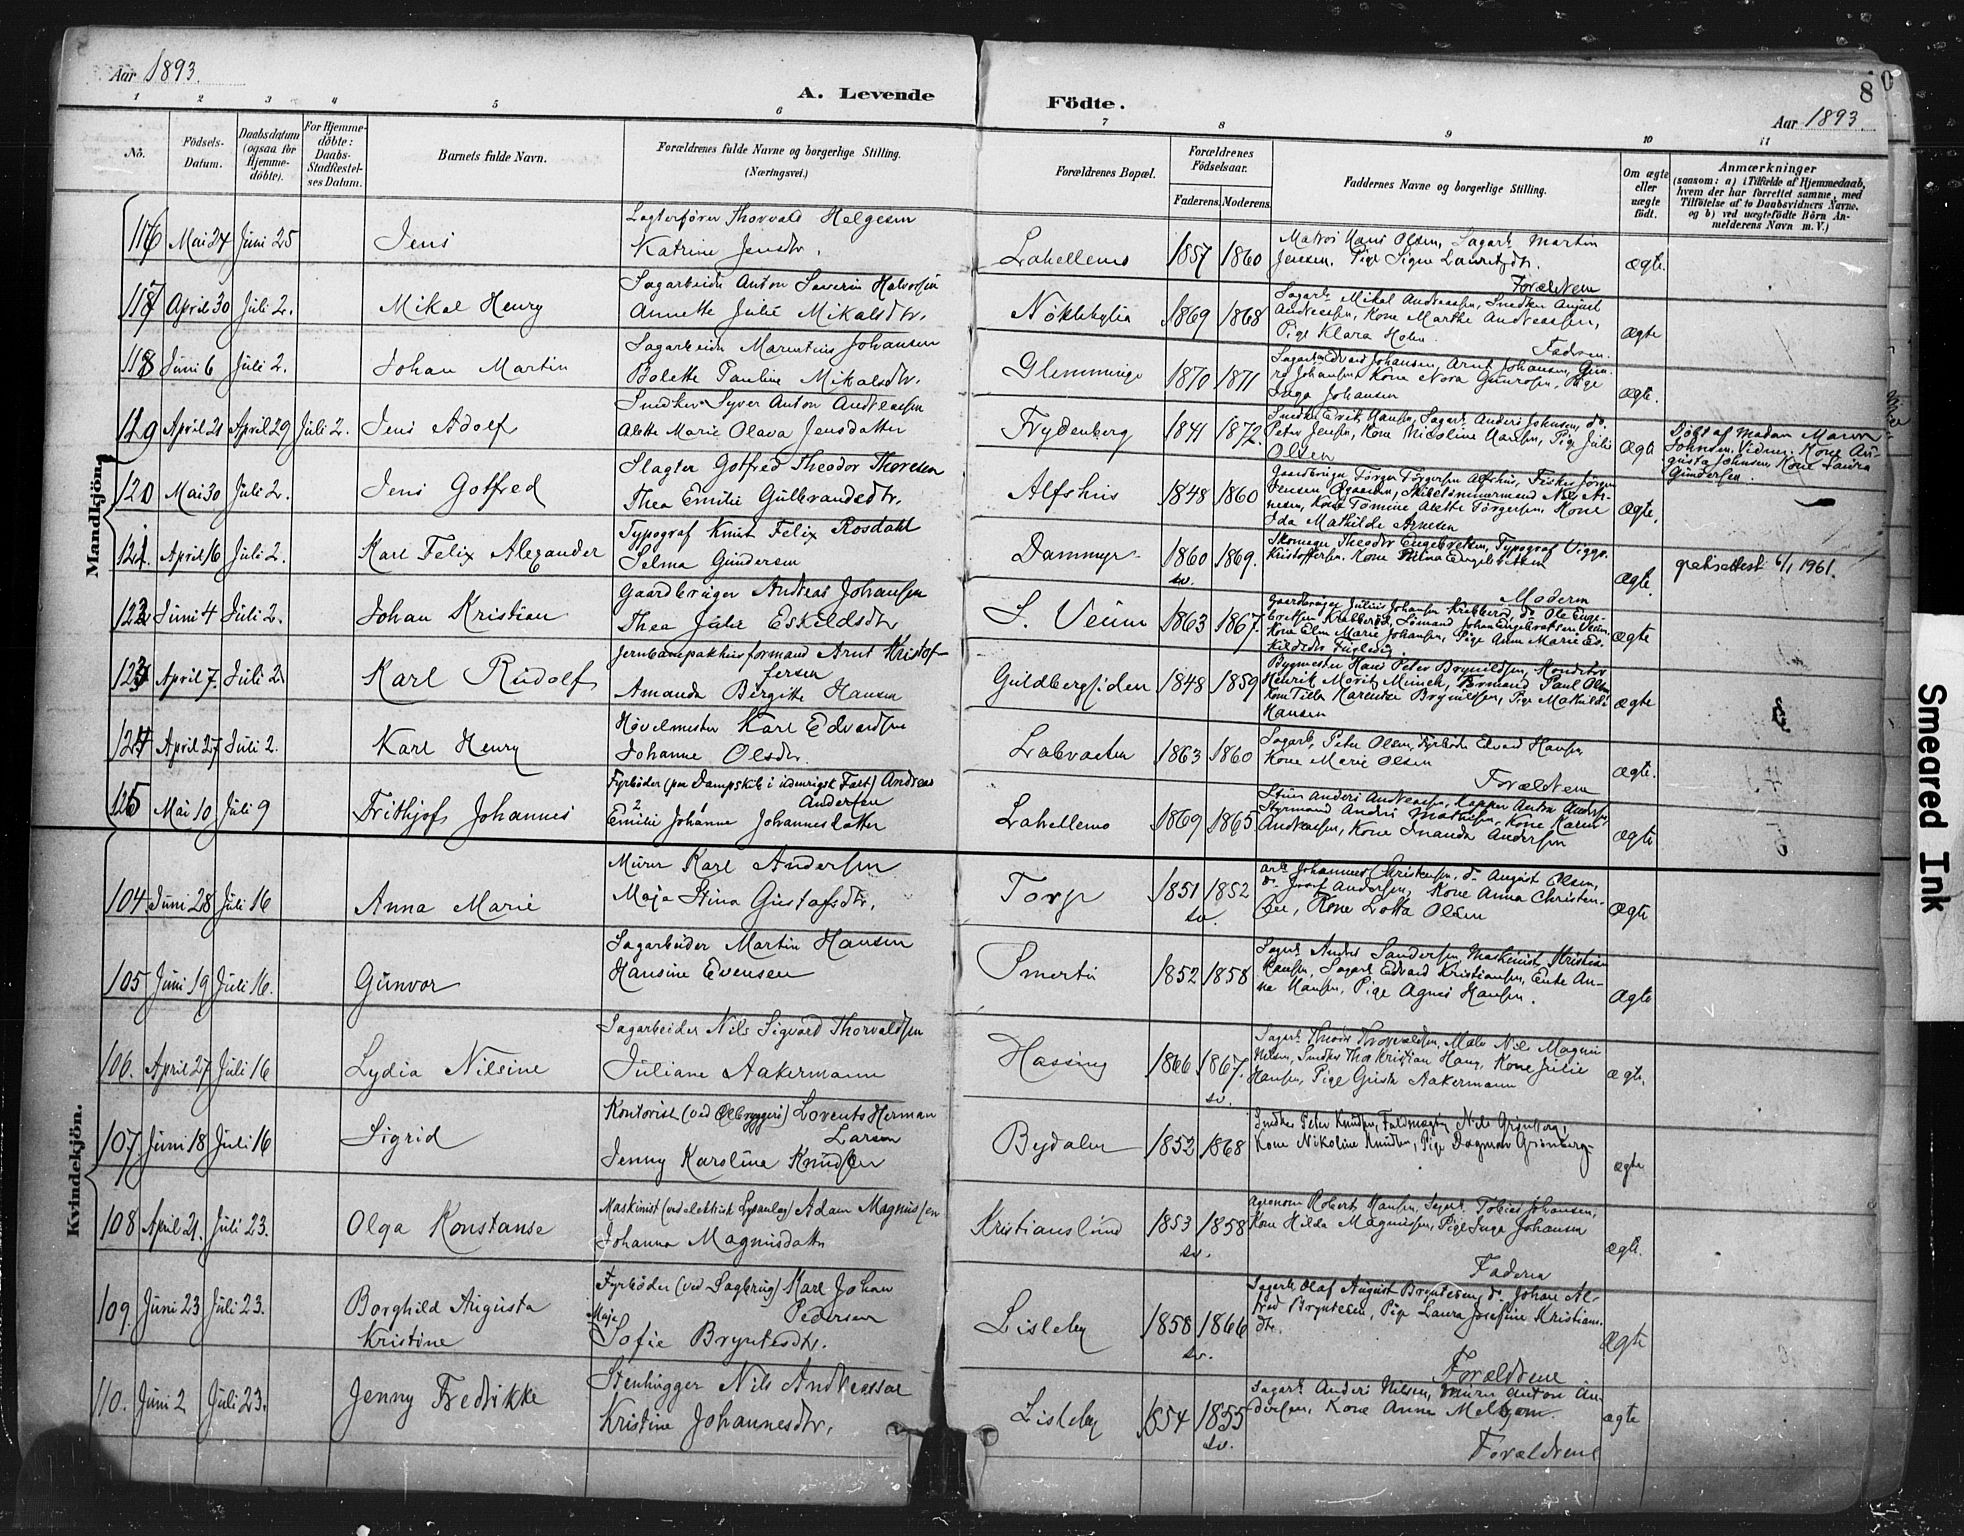 Aar 1893.
A. Levende Födte.
8
Aar 1893
1 2 3 4 5 6 7 8 9 10 11
No.
Födsels-
Datum.
Daabsdatum
(ogsaa for
Hjemme-
döbte).
For Hjemme-
döbte:
Daabs-
Stadfæstel-
ses Datum.
Barnets fulde Navn.
Forældrenes fulde Navne og borgerlige Stilling.
(Næringsvei.)
Forældrenes Bopæl.
Forældrenes
Födselsaar.
Faderens. Moderens.
Faddernes Navne og borgerlige Stilling.
Om ægte
eller
uægte
födt.
Anmærkninger
(saasom: a) i Tilfælde af Hjemmedaab,
hvem der har forrettet samme, med
Tilföielse af to Daabsvidners Navne.
og b) ved uægtefödte Börn An-
melderens Navn m. V.)
Mandkjön.
116 Mai 24 Juni 25 Jens
Thorvald Helgesen
Katrine Jensdtr.
Lahellemo 1857 1860
Matros Hans Olsen, Sagarb. Martin
Jensen, Pige Signe Lauritzdtr.
Forældrene
ægte.
117 April 30 Juli 2. Mikal Henry
Sagarbeider Anton Severin Halvorsen
Annette Julie Mikalsdtr.
Nöklebylia 1869 1868
Sagarb. Mikal Andreassen, Snedker August
Andreassen, Kone Marthe Andreassen,
Pige Klara Holm.
Faderen.
Ægte
118 Juni 6 Juli 2. Johan Martin
Sagarbeider Marentius Johansen
Bolette Pauline Mikalsdtr.
Glemminge 1870 1871
Sagarb. Edvard Johansen, Arnt Johansen, Gun-
Johansen, Kone Nora Gunrosen, Pige
Inga Johansen
Ægte.
119 April 21 April 29 Juli 2. Jens Adolf
Snedker Syver Anton Andreassen
Alette Marie Olava Jensdatter
Frydenberg 1841 1872.
Snedker Erik Hansen, Sagarb. Anders Johnsen, do.
Peter Jensen, Kone Nicoline Hansen, Pige Julie
Olsen
Ægte
Döbt af Madam Maren
Johnsen. Vidner: Kone Au-
gusta Johnsen, Kone Laura
Gundersen.
120 Mai 30 Juli 2. Jens Gotfred
Slagter Gotfred Theodor Thoresen
Thea Emilie Gulbrandsdtr.
Alfshus 1848 1860
Gaardbruger Törger Törgersen Alfshus, Fisker Jörgen
Jensen, Skibstömmermand Nils Ar-
nesen, Kone Tomine Alette Törgersen, Kone
Ida Mathilde Arnesen
Ægte.
121. April 16 Juli 2. Karl Felix Alexander
Typograf Knut Felix Rosdahl
Selma Gundersen
Dammyr 1860 sv. 1869.
Skomager Theodor Engebretsen, Typograf Viggo
Kristoffersen, Kone Mina Engebretsen
Moderen
Ægte.
attest 6/1 1961.
122 Juni 4 Juli 2. Johan Kristian
Gaardbruger Andreas Johansen
Thea Julie Eskildsdtr
S. Veum 1863 1867.
Gaardbruger Julius Johansen Krabberöd, do. Ole Enge-
bretsen Krabberöd, Sömand Johan Engebretsen Veum,
Kone Elen Marie Johansen, Pige Anne Marie Es-
kildsdtr Fuglevig.
Ægte
123 April 7. Juli 2 Karl Rudolf
formand Arnt Kristof-
fersen
Amanda Birgitte Hansen
Guldbergsiden 1848 1859
Bygmester Hans Peter Brynildsen, Konditor
Henrik Moritz Munch, Formand Paul Olsen
Kone Tilla Harentze Brynildsen, Pige Mathilde
Hansen
ægte
124 April 27 Juli 2. Karl Henry
Hövelmester Karl Edvardsen
Johanne Olsdtr.
Labraaten 1863 1860
Sagarb. Peter Olsen, Fyrböder Edvard Hansen
Kone Marie Olsen
Forældrene
Ægte.
125 Mai 10 Juli 9 Frithjof Johannes
Fyrböder (paa Dampskib i idenrigsk Fart) Andreas
Andersen
Emilie Johanne Johannesdatter
Lahellemo 1869 1865
Anders Andreassen, Anton Andersen,
Styrmand Anders Mathisen, Kone Karen
Andreassen, Kone Amanda Andersen
ægte
Kvindekjön.
104. Juni 28 Juli 16 Anna Marie
Murer Karl Andersen
Maja Stina Gustafsdtr.
Torp 1851 sv. 1852
Arb. Johannes Christensen, do. August Olsen,
do. Josef Andersen, Kone Anna Christen-
sen, Kone Lotta Olsen
Ægte
105 Juni 19 Juli 16. Gunvor
Sagarbeider Martin Hansen
Hansine Evensen
Smertu 1852 1858
Sagarb. Anders Sandersen, Maskinist Kristian
Hansen, Sagarb. Edvard Kristiansen, Enke An-
na Hansen, Pige Agnes Hansen.
Ægte
106. April 27 Juli 16 Lydia Nilsine
Sagarbeider Nils Sigvard Thorvaldsen
Juliane Aakermann
Hassing 1866 1867. sv.
Sagarb. Theodor Thorvaldsen, Maler Nils Magnus
Nilsen, Snedker Thor Kristian Haug, Kone Julie
Hansen, Pige Gusta Aakermann
Ægte.
107 Juni 18 Juli 16 Sigrid
Kontorist (ved Ölbryggeri) Lorents Herman
Larsen
Jenny Karoline Knudsen
Bydalen 1852 1868
Snedker Peter Knudsen, Fuldmægtig Nils Grönberg,
Kone Nikoline Knudsen, Pige Dagmar Grönberg
Ægte
108 April 21. Juli 23. Olga Konstanse
Maskinist (ved elektrisk Lysanlæg) Adam Magnussen
Johanna Magnusdatter
Kristianslund 1853 sv. 1858
Agronom Robert Hansen, Sagarb. Tobias Johansen,
Kone Hilda Magnussen, Pige Inga Johansen
Faderen
Ægte.
109. Juni 23 Juli 23. Borghild Augusta
Kristine
Fyrböder (ved Sagbrug) Karl Johan
Pedersen
Maja
Sofie Bryntesdtr.
Lisleby 1858 sv. 1866
Sagarb. Olaf August Bryntesen, do. Johan Al-
fred Bryntesen, Pige Laura Josefine Kristians-
dtr.
Forældrene
Ægte
110. Juni 2 Juli 23. Jenny Fredrikke
Stenhugger Nils Andreassen
Kristine Johannesdtr.
Lisleby 1854 1855 sv.
Sagarb. Anders Nilsen, Murer Anton An-
dersen, Kone Anna Melby
Forældrene
Ægte
Smeared Ink